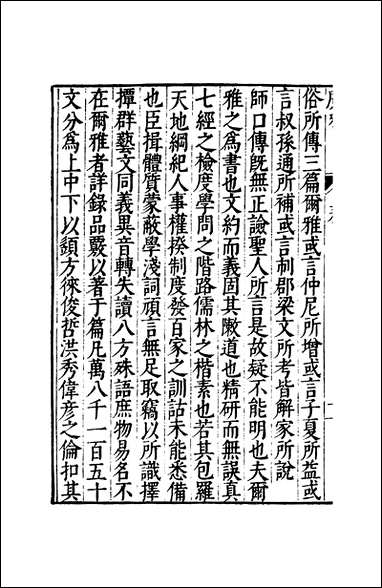 俗所傳三篇爾雅或言仲尼所增或言子夏所益或
言叔孫通所補或言制郡梁文所考皆解家所說
師口傳旣無正譣聖人所言是故疑不能明也夫爾
雅之爲書也文約而義固其敶道也精研而無誤真
七經之檢度學問之階路儒林之楷素也若其包羅
天地綱紀人事權揆制度發百家之訓詁未能悉備
也臣揖體質蒙蔽學淺詞頑言無足取竊以所識擇
撢群藝文同義異音轉失讀八方殊語庶物易名不
在爾雅者詳録品覈以著于篇凡萬八千一百五十
文分爲上中下以䫂方徠俊哲洪秀偉彦之倫扣其